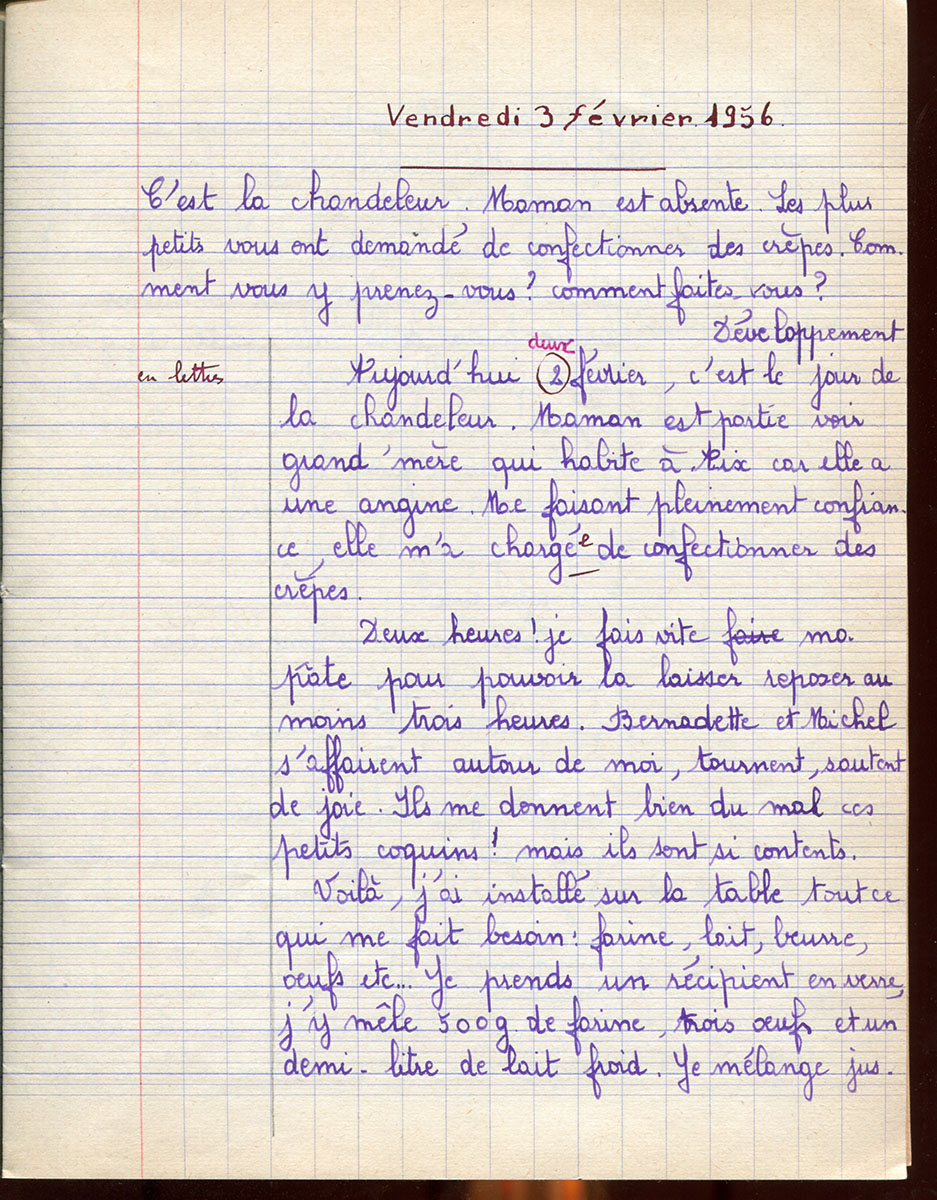 Vendredi 3 février 1956.
C'est la chandeleur. Maman est absente. Les plus
petits vous ont demandé de confectionner des crêpes. Com-
ment vous y prenez-vous? comment faites-vous?
Développement
deux
en lettres Aujourd'hui 2 février, c'est le jour de
la chandeleur. Maman est partie voir
grand'mère qui habite à Aix car elle a
une angine. Me faisant pleinement confian-
ce, elle m'a chargée de confectionner des
crêpes.
Deux heures! je fais vite faire ma
pâte pour pouvoir la laisser reposer au
moins trois heures. Bernadette et Michel
s'affairent autour de moi, tournent, sautent
de joie. Ils me donnent bien du mal ces
petits coquins! mais ils sont si contents.
Voilà, j'ai installé sur la table tout ce
qui me fait besoin: farine, lait, beurre,
oeufs etc... Je prends un récipient en verre,
j'y mêle 500g de farine, trois oeufs et un
demi-litre de lait froid. Je mélange jus-